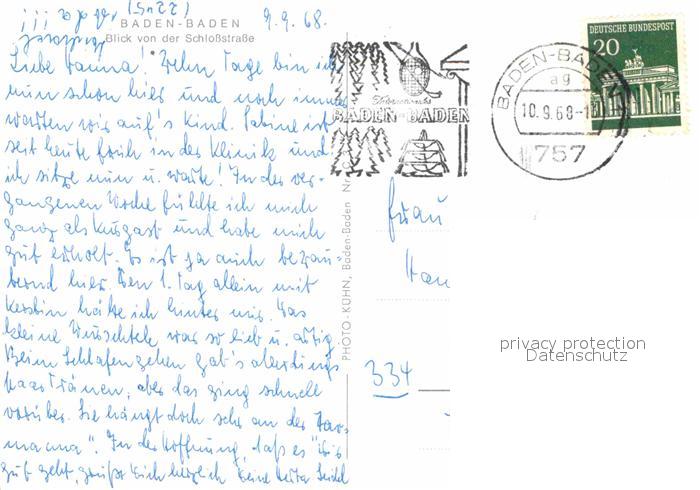 BADEN-BADEN
Blick von der Schloßstraße
9.9.68.
Liebe Hanna! Zehn Tage bin ich
nun schon hier und noch immer
warten wir auf's Kind. Sabine ist
seit heute früh in der Klinik und
ich sitze nun u. warte! In der ver-
gangenen Woche fühlte ich mich
ganz als Kurgast und habe mich
gut erholt. Es ist ja auch bezau-
bernd hier. Den 1. Tag allein mit
Kerstin hätte ich hinter mir. Das
kleine Wuschtele war so lieb u. artig.
Beim Schlafengehen gab's allerdings
paar Tränen, aber das ging schnell
vorüber. Sie hängt doch sehr an der
mama". In der Hoffnung, daß es
gut geht, grüßt Dich herzlich Deine
PHOTO-KÜHN, Baden-Baden Nr.
BADEN-BADEN
BADEN-BADEN
ag
10.9.68-1
757
DEUTSCHE BUNDESPOST
20
Frau
Han
334
privacy protection
Datenschutz